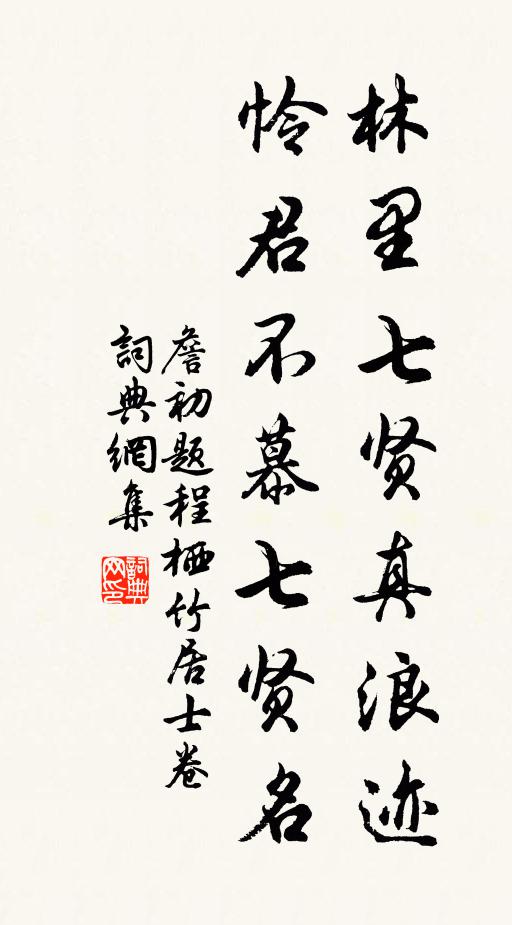 林里七贤真浪迹
怜君不慕七贤名
詹初题程栖竹居士卷
詞典網集
詞典网印